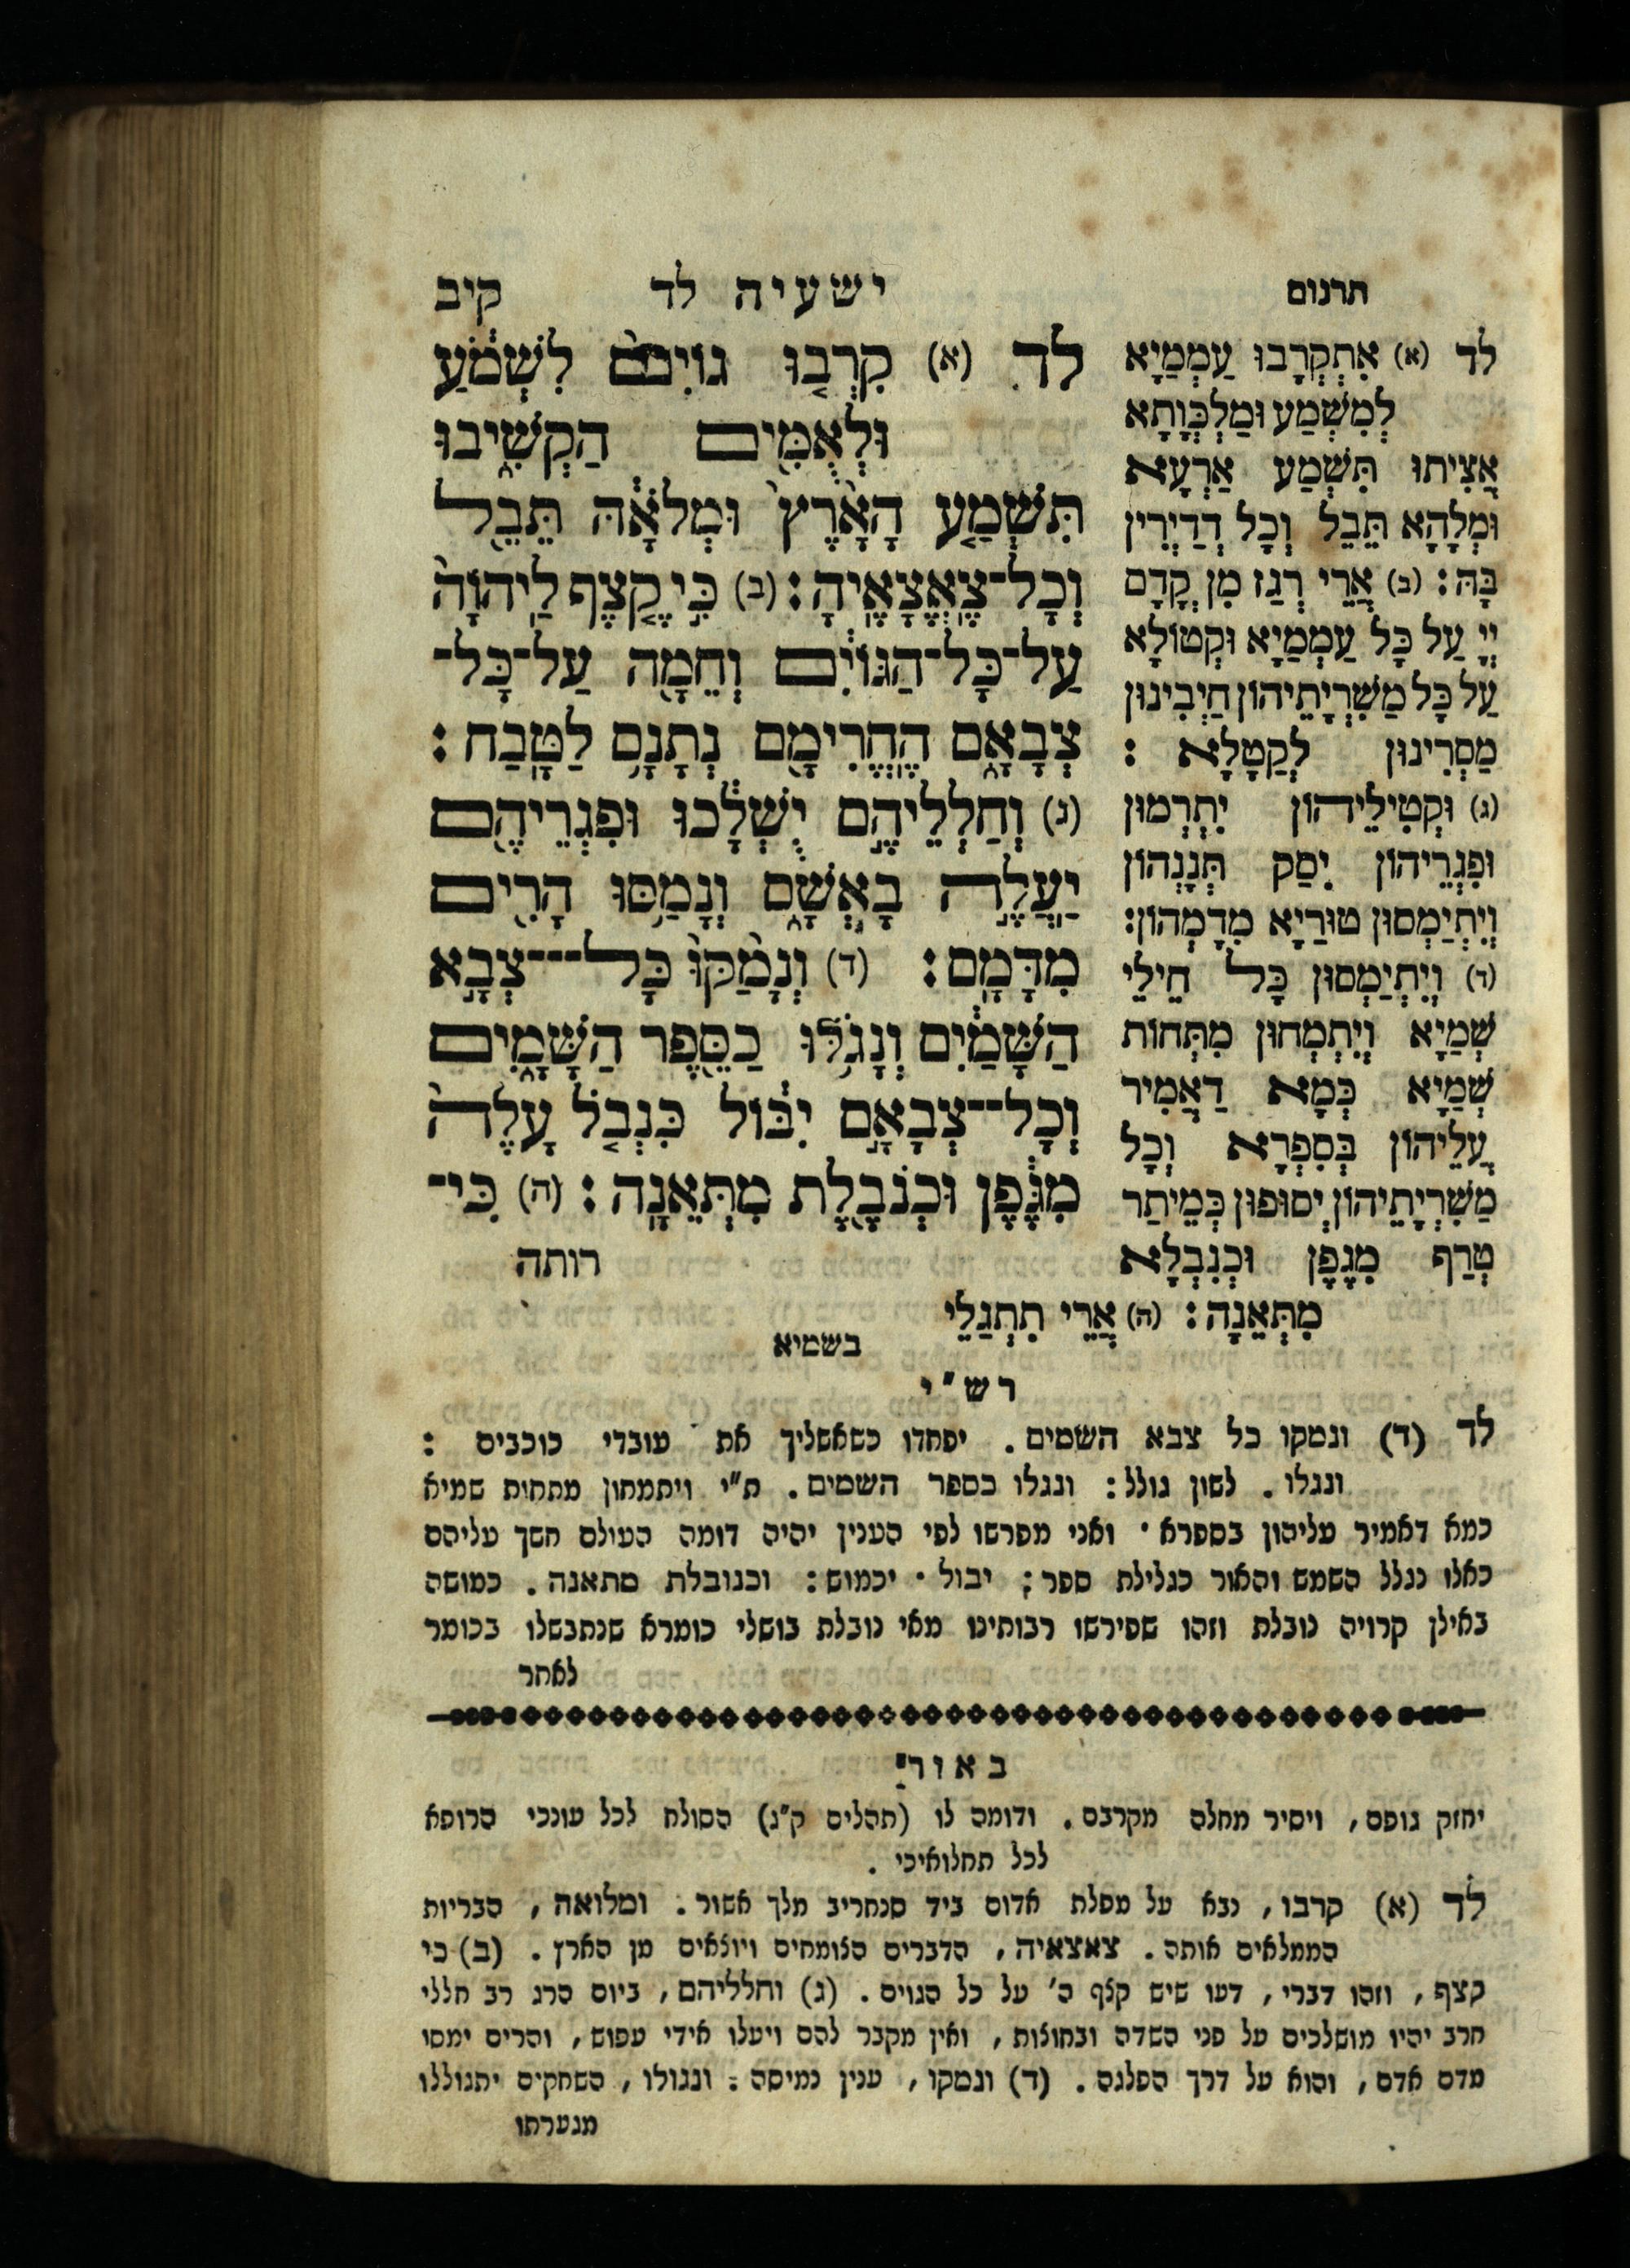 תרגום
ישעיה לד
קיב
לד (א) קִרְב֤וּ גוֹיִם֙ לִשְׁמֹ֔עַ
וּלְאֻמִּ֖ים הַקְשִׁ֑יבוּ
תִּשְׁמַ֤ע הָאָ֙רֶץ֙ וּמְלֹאָ֔הּ תֵּבֵ֖ל
וְכָל־צֶאֱצָאֶֽיהָ׃ (ב) כִּ֣י קֶ֤צֶף לַֽיהוָֹה֙
עַל־כָּל־הַגּוֹיִ֔ם וְחֵמָ֖ה עַל־כָּל־
צְבָאָ֑ם הֶחֱרִימָ֖ם נְתָנָ֥ם לַטָּֽבַח׃
(ג) וְחַלְלֵיהֶ֣ם יֻשְׁלָ֔כוּ וּפִגְרֵיהֶ֖ם
יַעֲלֶ֣ה בָאְשָׁ֑ם וְנָמַ֥סּוּ הָרִ֖ים
מִדָּמָֽם׃ (ד) וְנָמַ֙קּוּ֙ כָּל־צְבָ֣א
הַשָּׁמַ֔יִם וְנָגֹ֥לּוּ כַסֵּ֖פֶר הַשָּׁמָ֑יִם
וְכָל־צְבָאָ֣ם יִבּ֔וֹל כִּנְבֹ֤ל עָלֶה֙
מִגֶּ֔פֶן וּכְנֹבֶ֖לֶת מִתְּאֵנָֽה׃ (ה) כִּי־
רותה
לד (א) אִתְקְרָבוּ עַמְמַיָא
לְמִשְׁמַע וּמַלְכְּוָתָא
אֲצִיתוּ תִּשְׁמַע אַרְעָא
וּמְלָהָא תֵּבֵל וְכָל דְדַיְרִין
בָּהּ׃ (ב) אֲרֵי רְגַז מִן קֳדָם
יְיָ עַל כָּל עַמְמַיָא וּקְטוֹלָא
עַל כָּל מַשִׁרְיָתֵיהוֹן חַיְבִינוּן
מַסְרִינוּן לְקַטָלָא׃
(ג) וּקְטִילֵיהוֹן יִתְרְמוּן
וּפִגְרֵיהוֹן יִסַק תְּנָנְהוֹן
וְיִתְיַמְסוּן טוּרַיָא מִדְמְהוֹן׃
(ד) וְיִתְיַמְסוּן כָּל חֵילֵי
שְׁמַיָא וְיִתְמְחוּן מִתְּחוֹת
שְׁמַיָא כְּמָא דַאֲמִיר
עֲלֵיהוֹן בְּסִפְרָא וְכָל
מַשִׁרְיָתֵיהוֹן יְסוּפוּן כְּמֵיתַר
טְרַף מִגָפָן וּכְנִבְלָא
מִתְּאֵנָה׃ (ה) אֲרֵי תִתְגַלֵי
בשמיא
רש״י
לד (ד) ונמקו כל צבא השמים. יפחדו כשאשליך את עובדי כוכבים :
ונגלו. לשון גולל: ונגלו כספר השמים. ת״י ויתמחון מתחות שמיא
כמא דאמיר עליהון בספרא· ואני מפרשו לפי הענין יהיה דומה העולם חשך עליהם
כאלו נגלל השמש והאור כגלילת ספר: יבול· יכמוש: וכנובלת מתאנה. כמושה
באילן קרויה נובלת וזהו שפירשו רבותינו מאי נובלת בושלי כומרא שנתבשלו בכומר
לאחר
באור
יחזק גופם, ויסיר מחלה מקרבם. ודומה לו (תהלים ק״ג) הסולח לכל עונכי הרופא
לכל תחלואיכי.
לד (א) קרבו, נבא על מפלת אדום ביד סנחריב מלך אשור. ומלואה, הבריות
הממלאים אותה. צאצאיה, הדברים הצומחים ויוצאים מן הארץ. (ב) כי
קצף, וזהו דברי, דעו שיש קצף ה׳ על כל הגוים. (ג) וחלליהם, ביום הרג רב חללי
חרב יהיו מושלכים על פני השדה ובחוצות, ואין מקבר להם ויעלו אידי עפוש, והרים ימסו
מדם אדם, והוא על דרך הפלגה. (ד) ונמקו, ענין נמיסה. ונגולו, השחקים יתגוללו
מנערתו